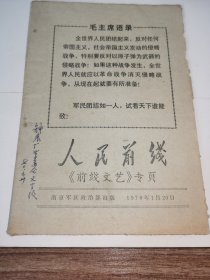 毛主席语录
全世界人民团结起来，反对任何
帝国主义、社会帝国主义发动的侵略
战争，特别要反对以原子弹为武器的
侵略战争！如果这种战争发生，全世
界人民就应以革命战争消灭侵略战
争，从现在起就要有所准备！
军民团结如一人，试看天下谁能
敌！
人民前线
《前线文艺》专页
南京军区政治部出版 1970年1月20日